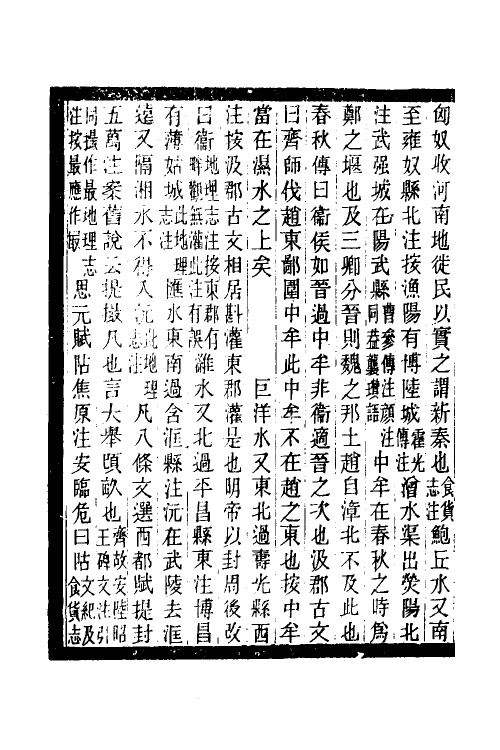 匈奴收河南地徙民以實之謂新秦也食貨志注鮑丘水又南
至雍奴縣北注按漁陽有博陸城霍光傳注曾水渠出滎陽北
注武强城在陽武縣曹參傳注顔同益藁瓚語注中牟在春秋之時爲
鄭之堰也及三卿分晉則魏之邦土趙自漳北不及此也
春秋傳曰衞侯如晉過中牟非衞適晉之次也汲郡古文
曰齊師伐趙東鄙圍中牟此中牟不在趙之東也按中牟
當在濕水之上矣 巨洋水又東北過壽光縣西
注按汲郡古文相居斟灌東郡灌是也明帝以封周後改
曰衞地理志注按東郡有畔觀無灌此注有誤濰水又北過平昌縣東注博昌
有薄姑城此地理志注 匯水東南過含洭縣注沅在武陵去洭
遠又隔湘水不得入沅此地理志注 凡八條文選西都賦提封
五萬注案舊說云提撮凡也言大舉頃畝也齊故安陸昭王碑文注引
同撮作最地理志注按最應作冣 思元賦阽焦原注安臨危曰阽文紀及食貨志